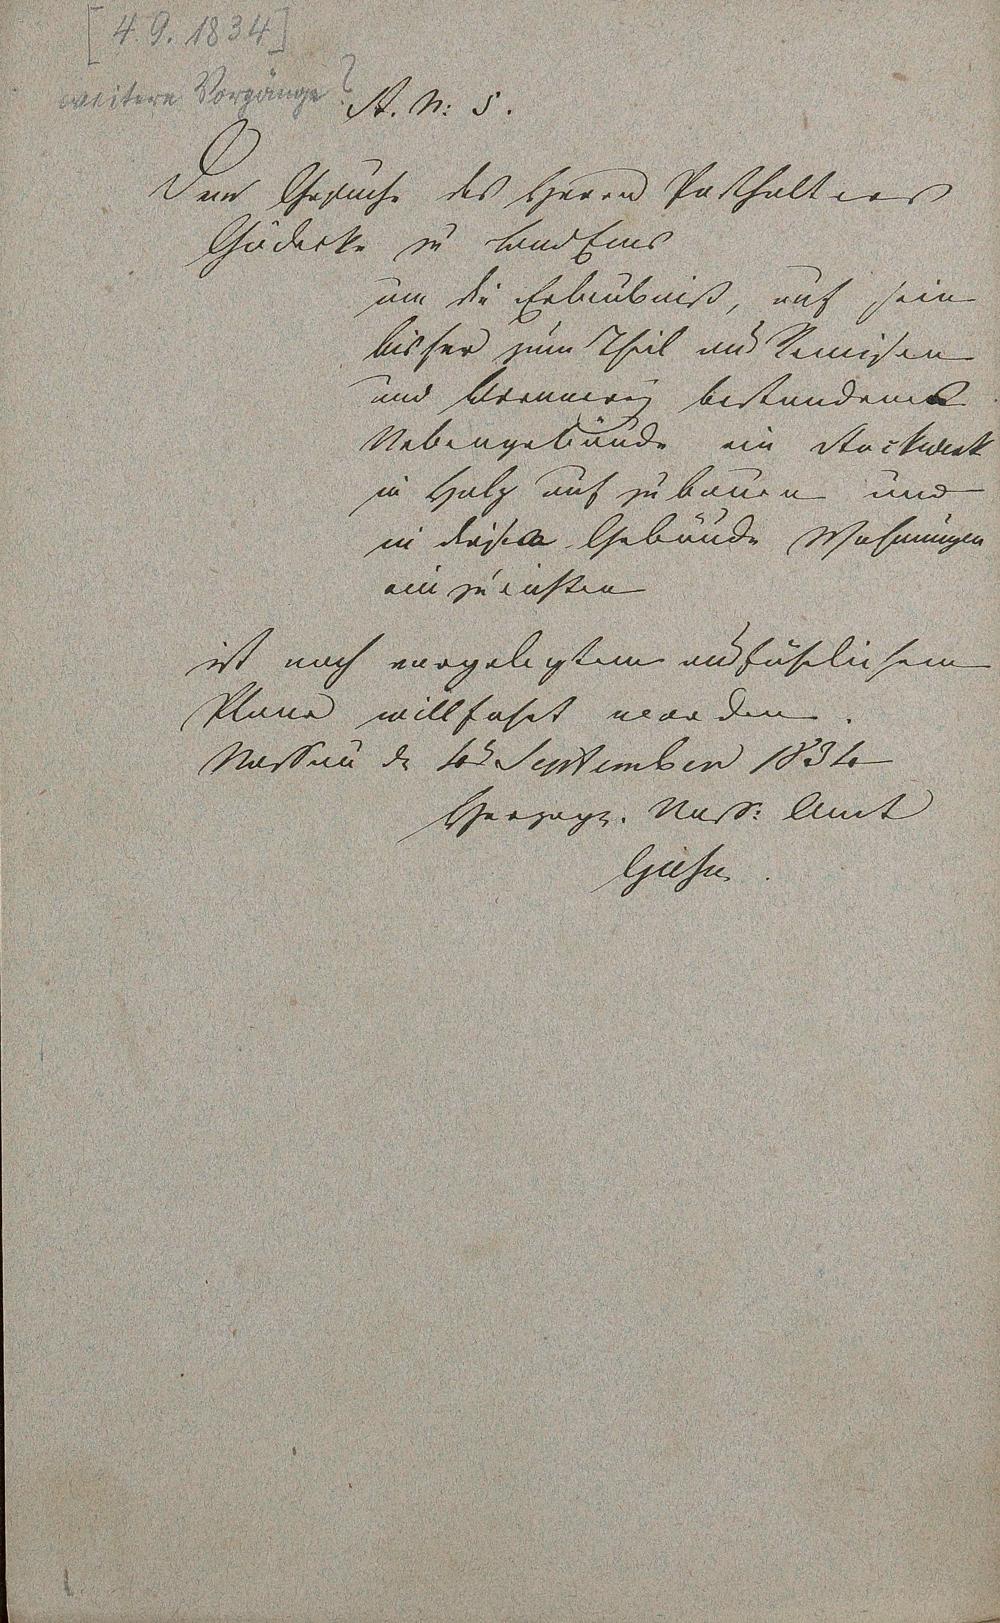 [4.9.1834]
weitere Vorgänge?
A. N: 5.
Dem Gesuche des Herrn Posthalters
Gödecke zu Bad Ems
um die Erlaubniß, auf sein
bisher zum Theil aus Remisen
und Brennerey bestandenes
Nebengebäude ein Stockwerk
in Holz auf zu bauen und
in diesem Gebäude Wohnungen
ein zu richten
ist nach vorgelegtem ausführlichem
Plane willfahrt worden.
Nassau d. 4t September 1834
Herzogl. Nass: Amt